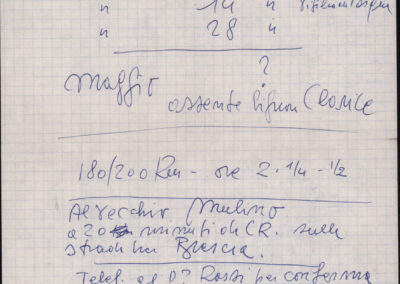 " 14 "
" 28 "
?
Maggio
assente
180/200 Km - ore 2.1/4 - 1/2
Al Vecchio Mulino
a 20 minuti di CR. sulla
strada per Brescia.
Telef. al D? Rossi per conferma